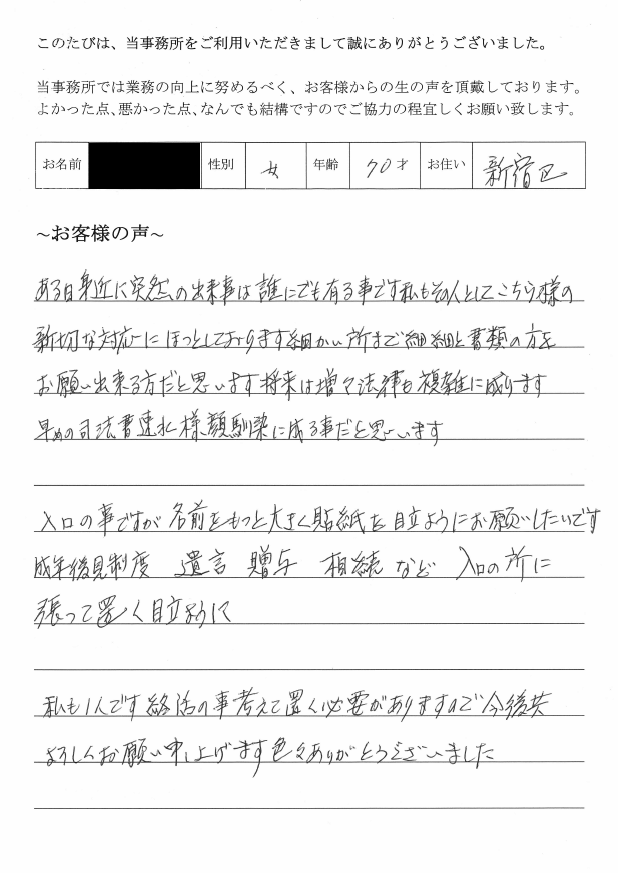 このたびは、当事務所をご利用いただきまして誠にありがとうございました。
当事務所では業務の向上に努めるべく、お客様からの生の声を頂戴しております。
よかった点、悪かった点、なんでも結構ですのでご協力の程宜しくお願い致します。
お名前 性別 女 年齢 70才 お住い 新宿区
~お客様の声~
ある日身近に突然の出来事は誰にでも有る事です私もその人としてこちら様の
新切な対応にほっとしております細かい所まで細細と書類の方を
お願い出来る方だと思います将来は増々法律も複雑に成ります
早めの司法書 様顔馴染に成る事だと思います
入口の事ですが名前をもっと大きく貼紙を目立ようにお願いしたいです
成年後見制度 遺言 贈与 相続 など 入口の所に
張って置く目立ように
私も1人です終活の事考えて置く必要がありますので今後共
よろしくお願い申し上げます色々ありがとうございました